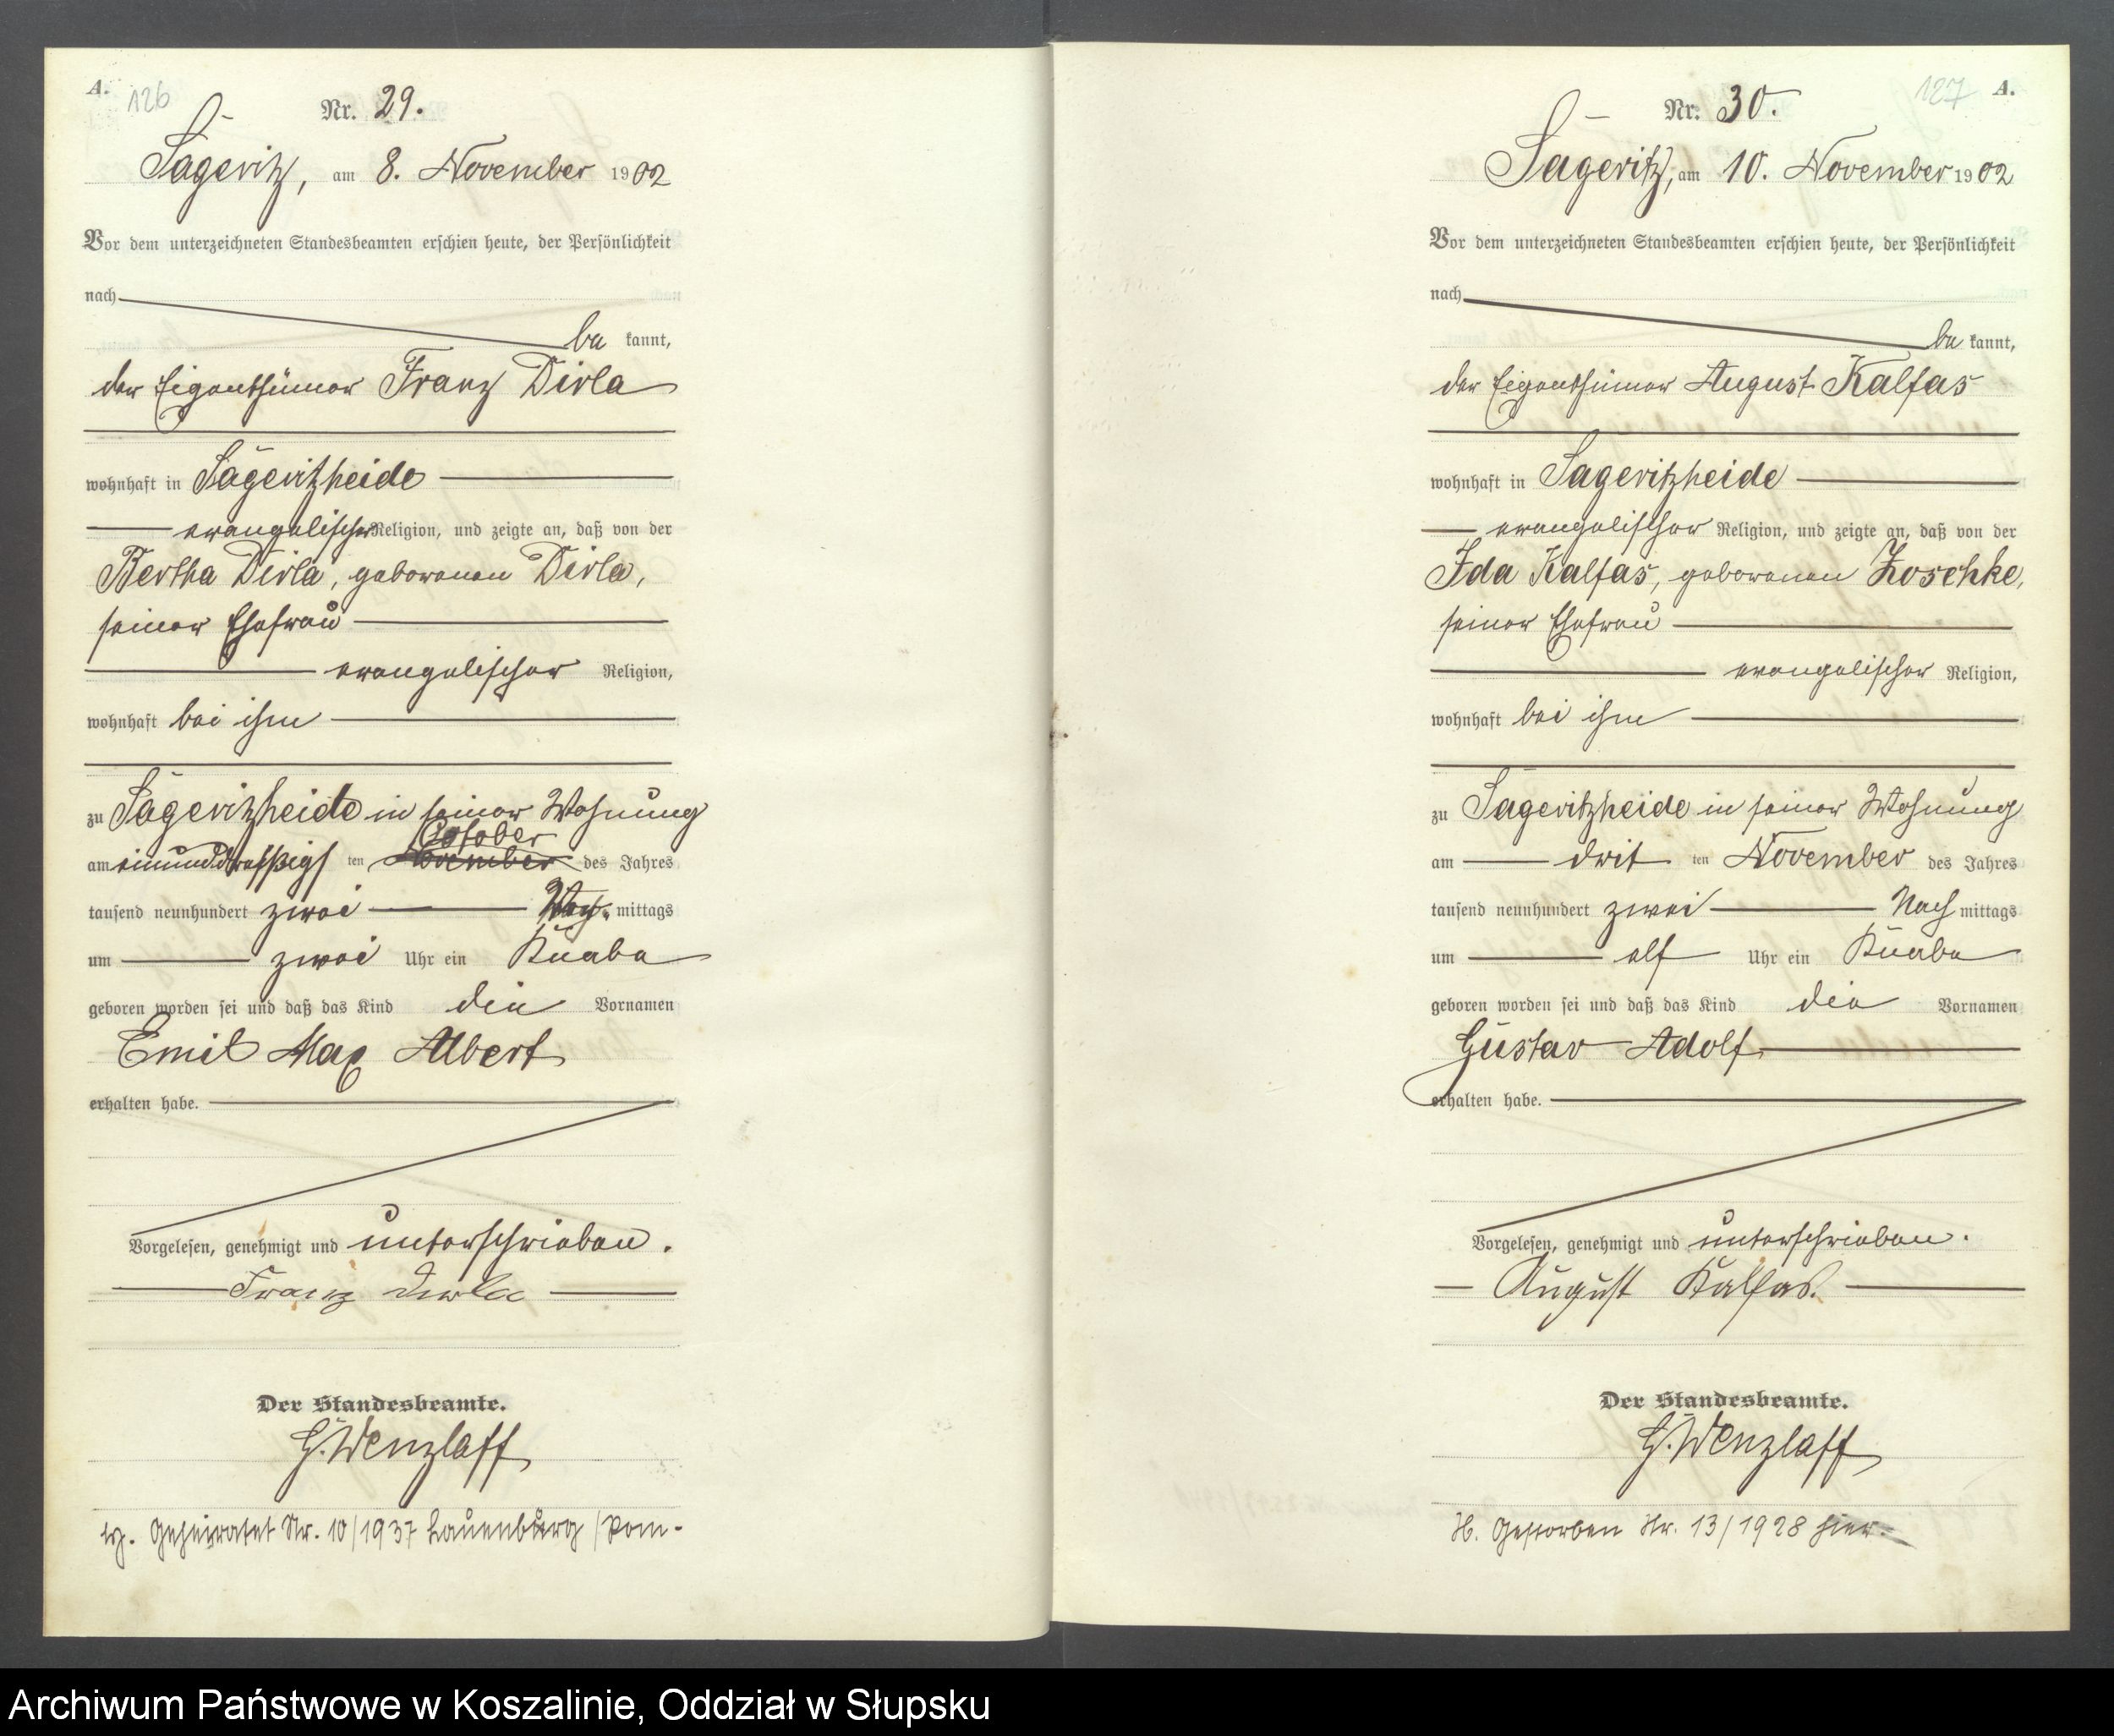 A.
126
Nr. 29.
Sageritz, am 8. November 1902
Vor dem unterzeichneten Standesbeamten erschien heute, der Persönlichkeit
nach
be kannt,
der Eigenthümer Franz Dirla
wohnhaft in Sageritzheide
evangelischer Religion, und zeigte an, daß von der
Bertha Dirla, geborenen Dirla,
seiner Ehefrau
evangelischer Religion,
wohnhaft bei ihm
zu Sageritzheide in seiner Wohnung
October
am einunddreißigs ten November des Jahres
tausend neunhundert zwei mittags
um zwei Uhr ein Knabe
geboren worden sei und daß das Kind die Vornamen
Emil Max Albert
erhalten habe.
Vorgelesen, genehmigt und unterschrieben.
Franz Dirla
Der Standesbeamte.
G. Wenzlaff
Geheiratet Nr. 10/1937 Lauenburg /Pom-
127
A.
Nr. 30.
Sageritz, am 10. November 1902
Vor dem unterzeichneten Standesbeamten erschien heute, der Persönlichkeit
nach
be kannt,
der Eigenthümer August Kalfas
wohnhaft in Sageritzheide
evangelischer Religion, und zeigte an, daß von der
Ida Kalfas, geborenen Zoschke,
seiner Ehefrau
evangelischer Religion,
wohnhaft bei ihm
zu Sageritzheide in seiner Wohnung
am drit ten November des Jahres
tausend neunhundert zwei Nach mittags
um elf Uhr ein Knabe
geboren worden sei und daß das Kind die Vornamen
Gustav Adolf
erhalten habe.
Vorgelesen, genehmigt und unterschrieben.
August Kalfas.
Der Standesbeamte.
G. Wenzlaff
H. Gestorben Nr. 13/1928 hier.
Archiwum Państwowe w Koszalinie, Oddział w Słupsku